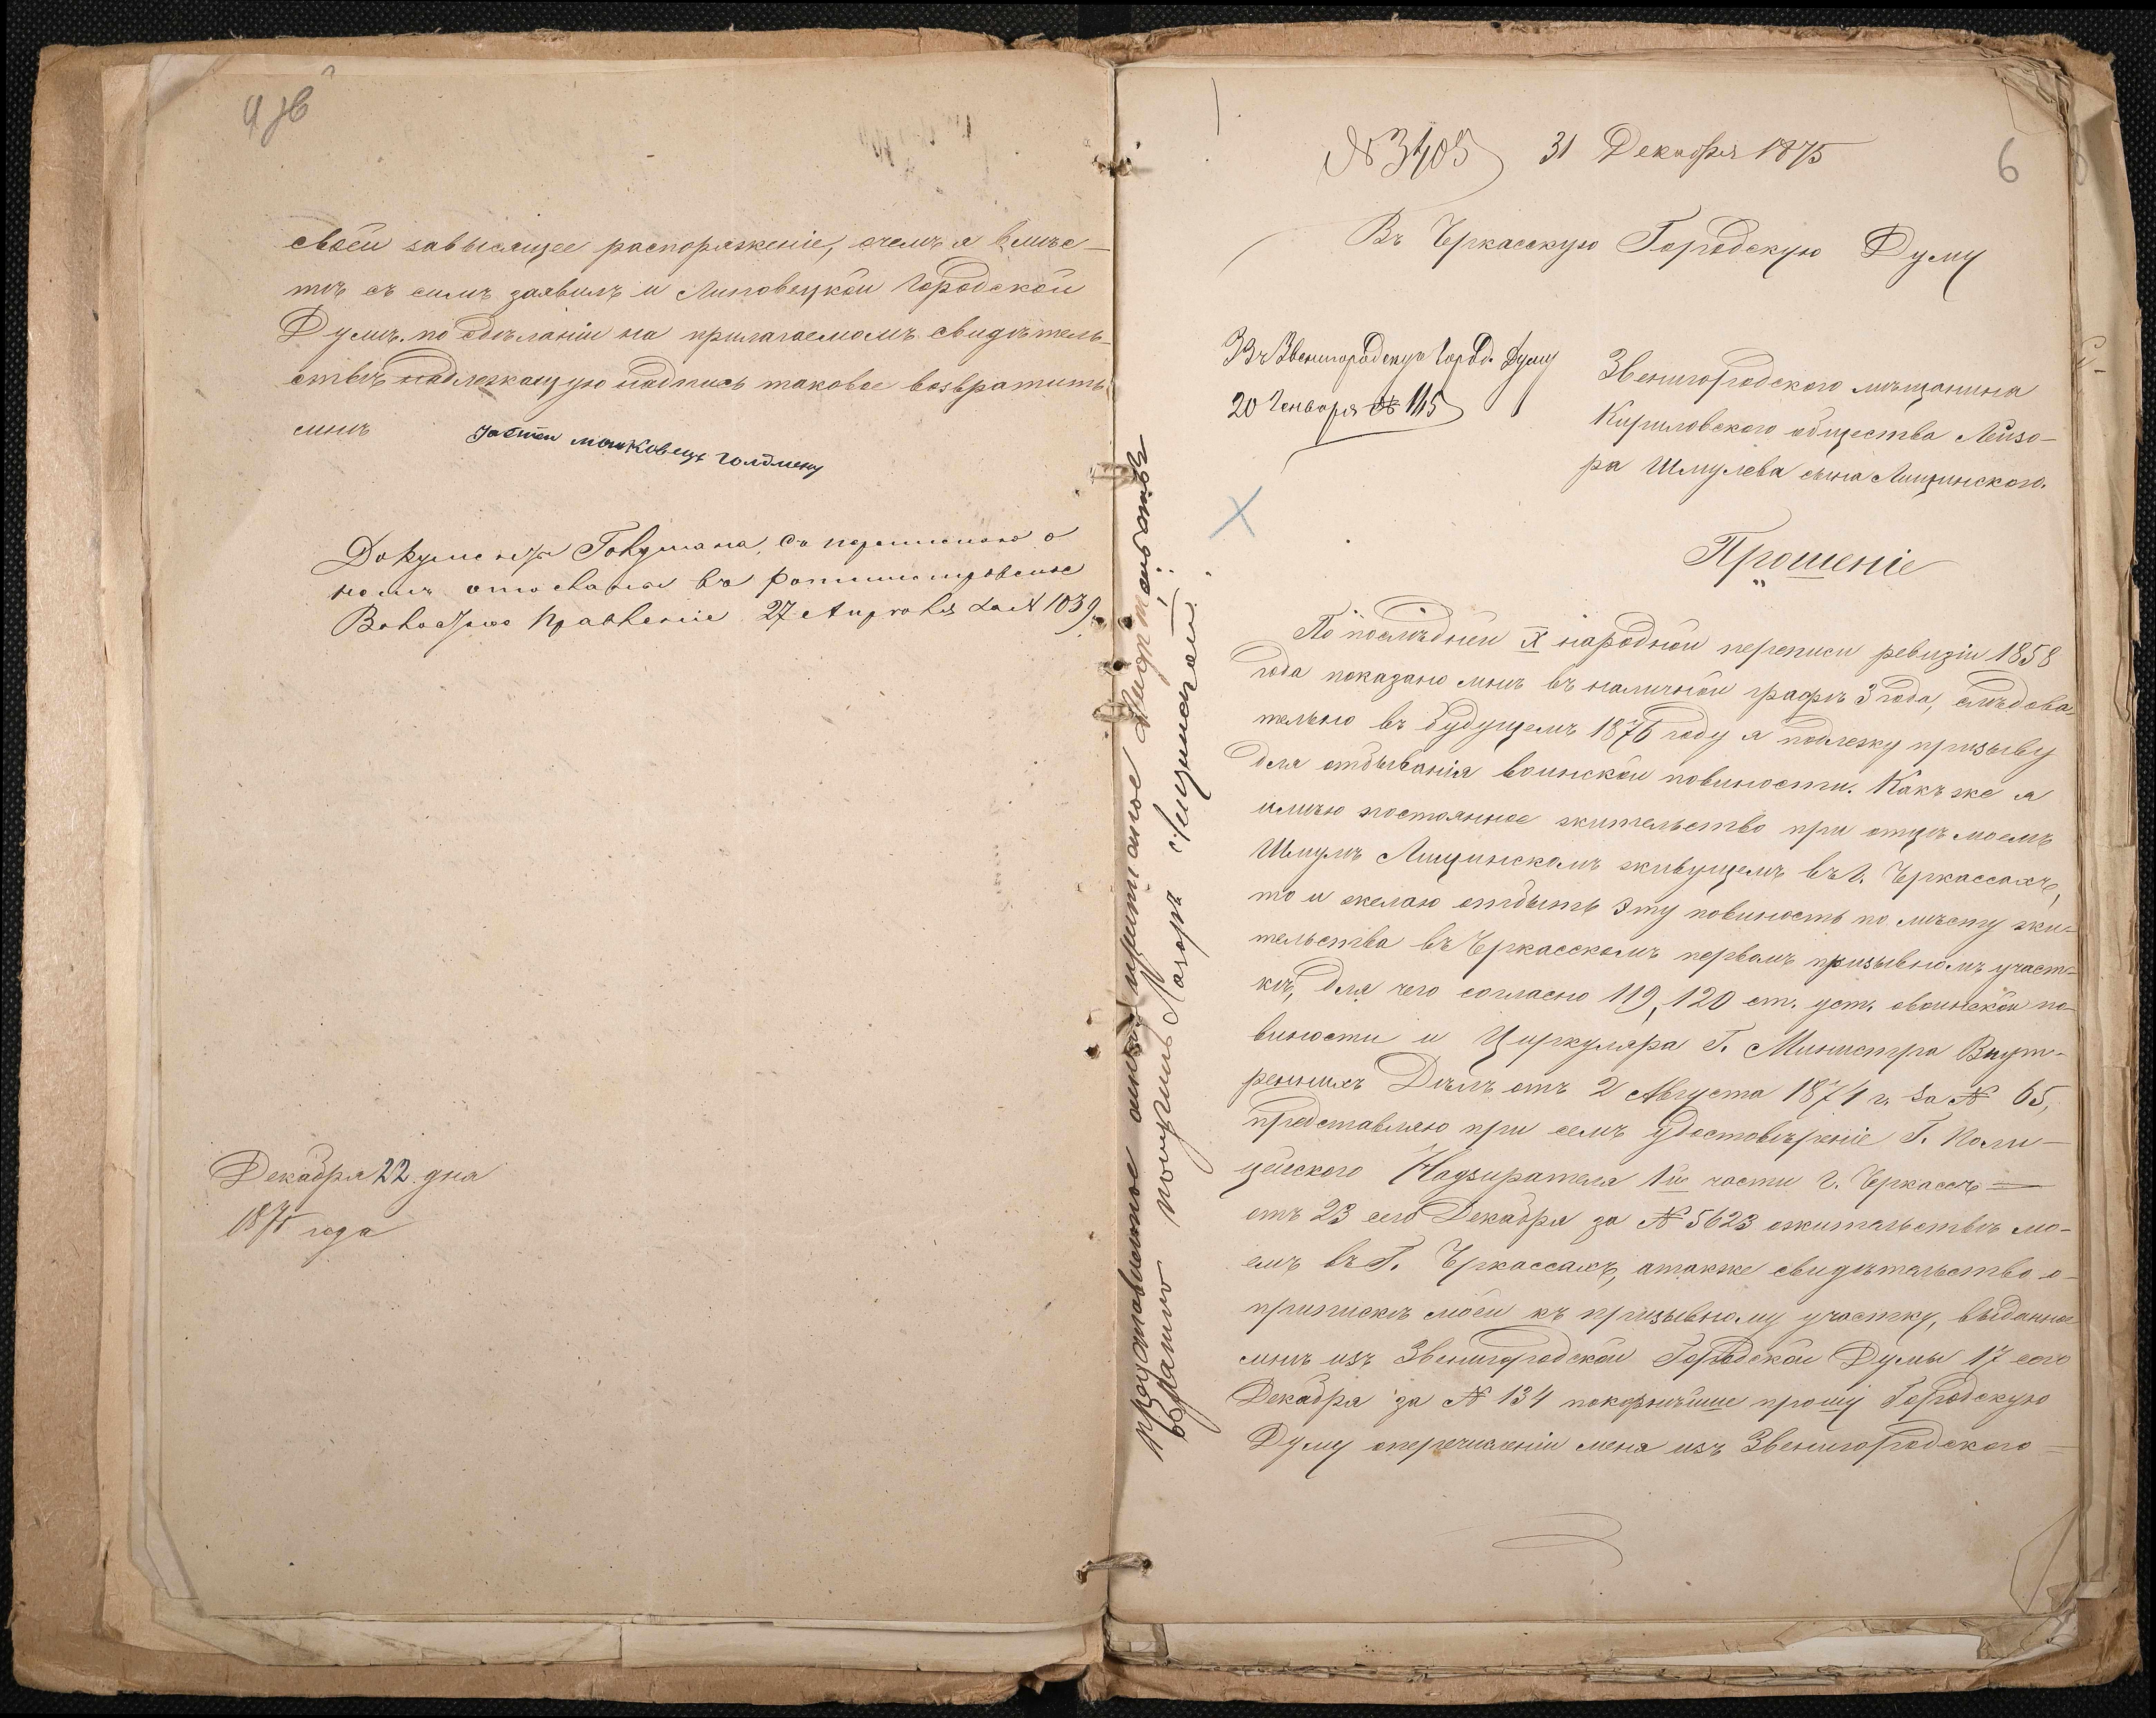 своей зависящее распоряженіе, о чемъ я вмѣс-
тѣ съ симъ заявилъ и Липовецкой Городской
Думѣ. по сдѣланіи на прилагаемомъ свидѣтель-
ствѣ надлежащую надпись таковое возвратить
мнѣ
Документъ съ перепискою о
немъ отосланы въ
Волостное Правленіе 27 Апрѣля за № 1039.
Декабря 22 дня
1875 года
6
№ 3405 31 Декабря 1875
Въ Черкасскую Городскую Думу
Въ Звенигородскую Город. Думу
20 Генваря № 115
Звенигородского мѣщанина
Кириловского общества Лейзо-
ра Шмулева сына Лищинского.
Прошеніе
По послѣдней X народной переписи ревизіи 1858
года показано мнѣ въ наличной графѣ 3 года, слѣдова-
тельно въ будущемъ 1876 году я подлежу призыву
для отбыванія воинской повиности. Какъ же я
имѣю постоянное жительство при отцѣ моемъ
Шмулѣ Лищинскомъ живущемъ въ г. Черкассахъ,
то и желаю отбыть эту повиность по мѣсту жи-
тельства въ Черкасскомъ первомъ призывномъ участ-
кѣ, для чего согласно 119, 120 ст. уст. о воинской по-
виности и Циркуляра Г. Министра Внут-
ренныхъ Дѣлъ отъ 2 Августа 1874 г. за № 65,
представляю при семъ удостовѣреніе Г. Поли-
цейского Надзирателя 1й части г. Черкассъ
отъ 23 сего Декабря за № 5623 о жительствѣ мо-
емъ въ Г. Черкассахъ, а также свидѣтельство о
припискѣ моей къ призывному участку, выданное
мнѣ изъ Звенигородской Городской Думы 17 сего
Декабря за № 134 покорнѣйше прошу Городскую
Думу о перечисленіи меня изъ Звенигородского
представленное мною
обратно получилъ Лазоръ Лещинскій